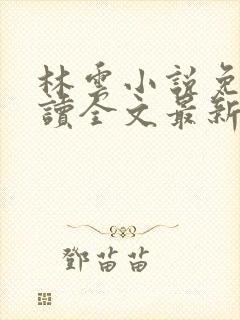 林雲小說免
讀全文最新
鄧苗苗